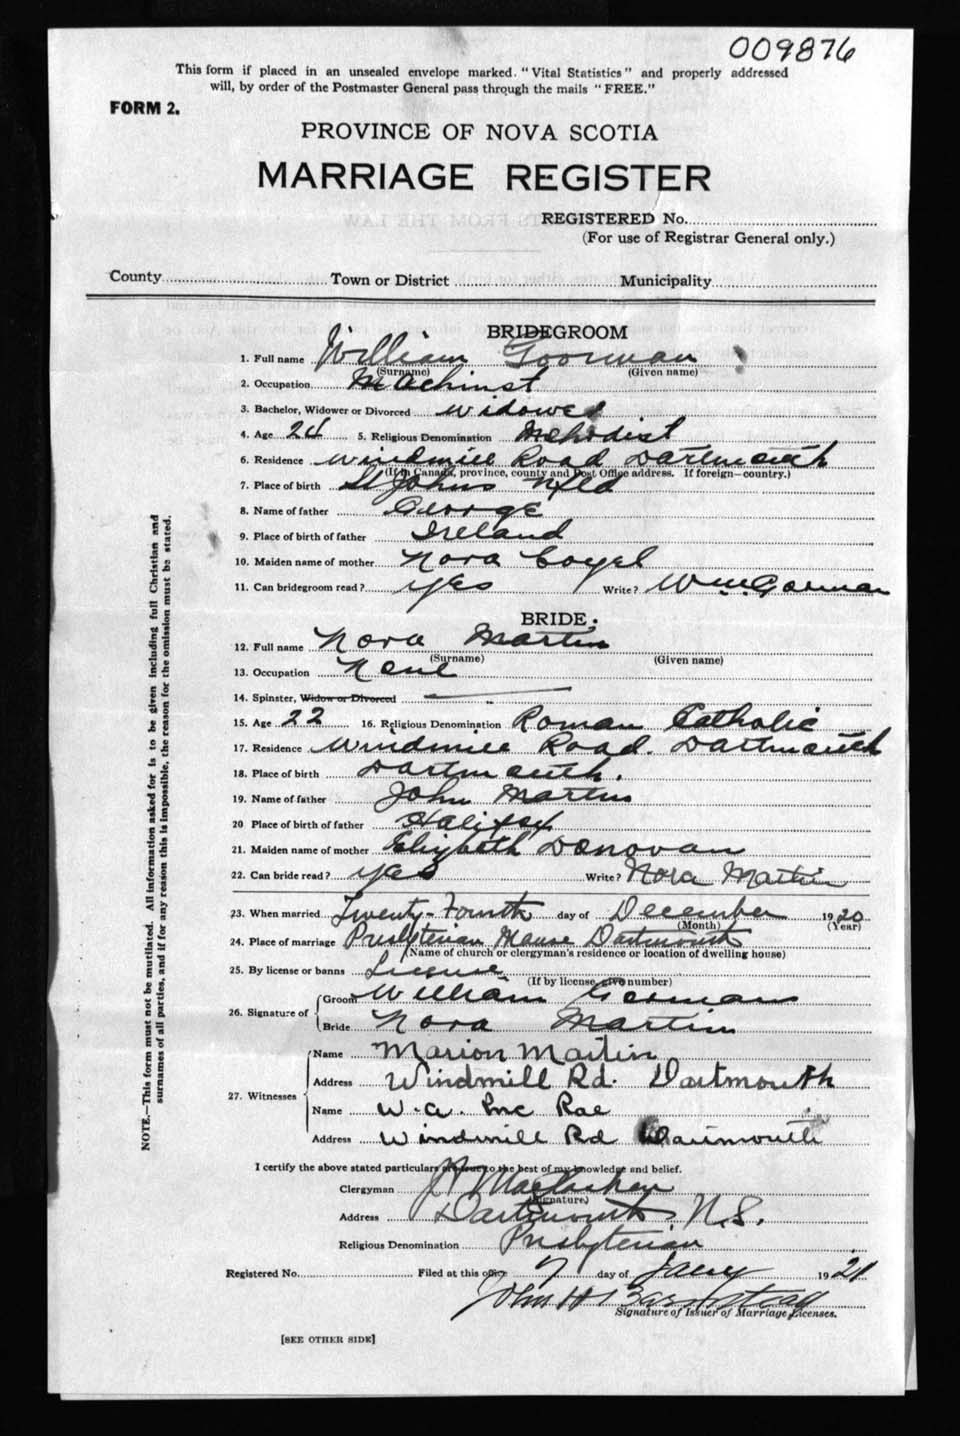 009876
This form if placed in an unsealed envelope marked. "Vital Statistics" and properly addressed
will, by order of the Postmaster General pass through the mails "FREE."
FORM 2.
PROVINCE OF NOVA SCOTIA
MARRIAGE REGISTER
REGISTERED No.
(For use of Registrar General only.)
County Town or District Municipality
BRIDEGROOM
1. Full name William Goorman
(Surname) (Given name)
2. Occupation Machinst
3. Bachelor, Widower or Divorced Widower
4. Age 24 5. Religious Denomination Methodist
6. Residence Windmill Road Dartmouth
(If in Canada, province, county and Post Office address. If foreign—country.)
7. Place of birth St Johns Nfld
8. Name of father George
9. Place of birth of father Ireland
10. Maiden name of mother Nora Coyel
11. Can bridegroom read? yes Write? Wm Gorman
BRIDE.
12. Full name Nora Martin
(Surname) (Given name)
13. Occupation None
14. Spinster, Widow or Divorced
15. Age 22 16. Religious Denomination Roman Catholic
17. Residence Windmill Road. Dartmouth
18. Place of birth Dartmouth.
19. Name of father John Martin
20 Place of birth of father Halifax
21. Maiden name of mother Elizbeth Donovan
22. Can bride read? yes Write? Nora Martin
23. When married Twenty-Fourth day of December 1920
(Month) (Year)
24. Place of marriage Presbyterian Manse Dartmouth
(Name of church or clergyman's residence or location of dwelling house)
25. By license or banns License
(If by license, give number)
26. Signature of Groom William Gorman
Bride Nora Martin
27. Witnesses Name Marion Martin
Address Windmill Rd. Dartmouth
Name W. A. Mc Rae
Address Windmill Rd Dartmouth
I certify the above stated particulars are true to the best of my knowledge and belief.
Clergyman
(Signature)
Address Dartmouth N.S.
Religious Denomination Presbyterian
Registered No. Filed at this office 7 day of Jany 1921
John H
Signature of Issuer of Marriage Licenses.
[SEE OTHER SIDE]
NOTE.—This form must not be mutilated. All information asked for is to be given including full Christian and
surnames of all parties, and if for any reason this is impossible, the reason for the omission must be stated.